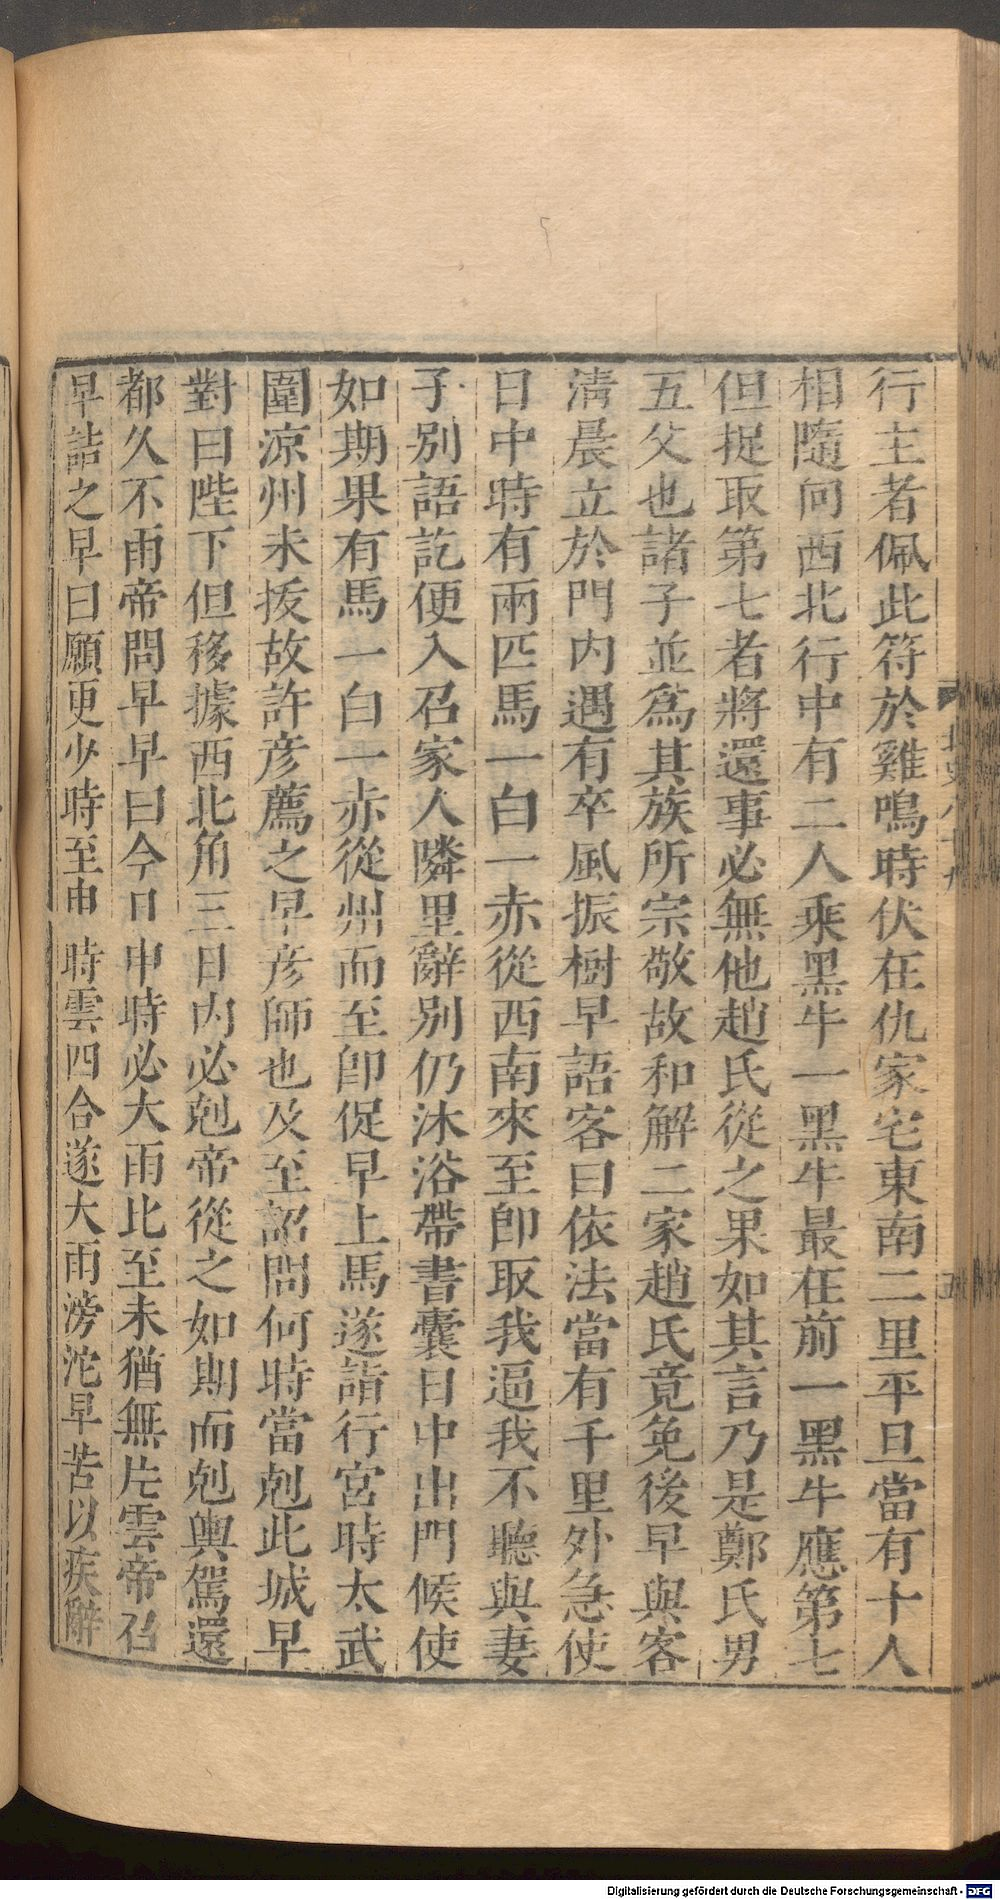 行主者佩此符於雞鳴時伏在仇家宅東南二里平旦當有十人
相隨向西北行中有二人乘黑牛一黑牛最在前一黑牛應第七
但捉取第七者將還事必無他趙氏從之果如其言乃是鄭氏男
五父也諸子並爲其族所宗敬故和解二家趙氏竟免後早與客
淸晨立於門內遇有卒風振樹早語客曰依法當有千里外急使
日中時有兩匹馬一白一赤從西南來至卽取我逼我不聽與妻
子別語訖便入召家人隣里辭別仍沐浴帶書囊日中出門候使
如期果有馬一白一赤從州而至卽促早上馬遂詣行宮時太武
圍涼州未拔故許彥薦之早彥師也及至詔問何時當尅此城早
對曰陛下但移據西北角三日內必尅帝從之如期而尅輿駕還
都久不雨帝問早早曰今日申時必大雨比至未猶無片雲帝召
早詰之早曰願更少時至申時雲四合遂大雨滂沱早苦以疾辭
Digitalisierung gefördert durch die Deutsche Forschungsgemeinschaft - DFG